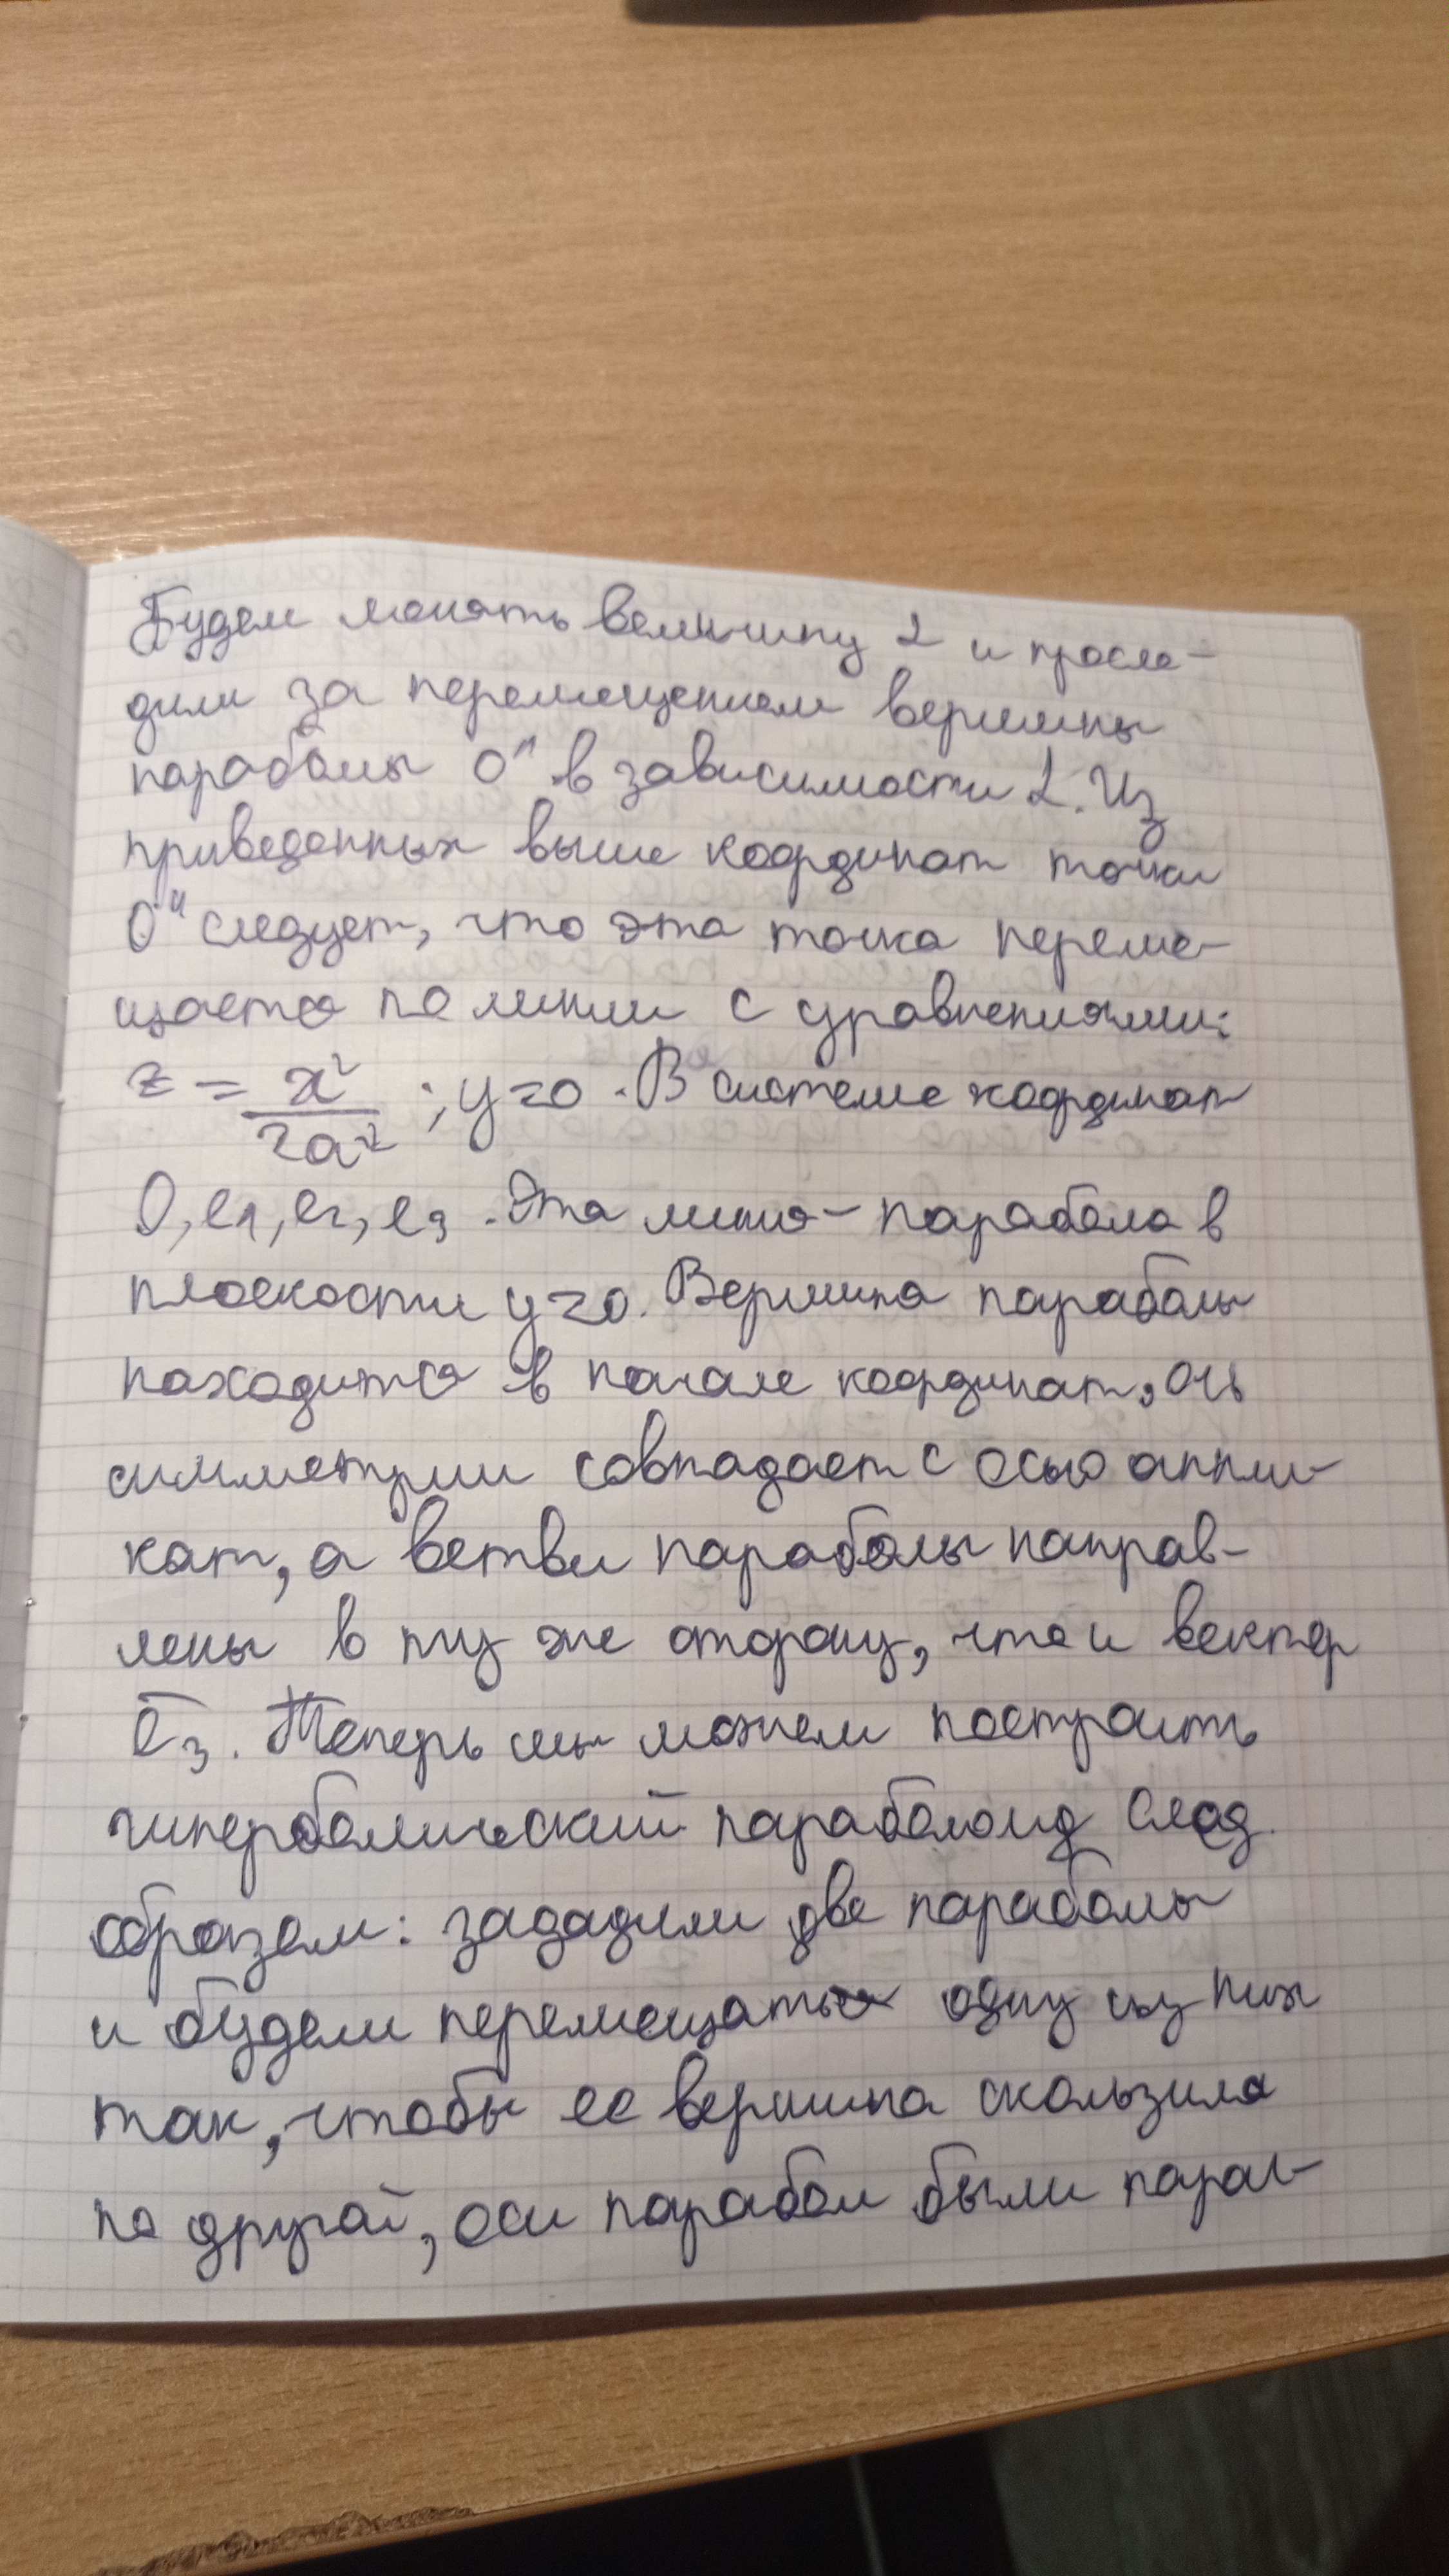 Будем менять величину α и просле-
дим за перемещением вершины
параболы O" в зависимости α. Из
приведенных выше координат точки
O" следует, что эта точка переме-
щается по линии с уравнениями:
z = x²/2a² ; y=0. В системе координат
O, e1, e2, e3. Эта линия - парабола в
плоскости y=0. Вершина параболы
находится в начале координат, ось
симметрии совпадает с осью аппли-
кат, а ветви параболы направ-
лены в ту же сторону, что и вектор
e̅3. Теперь мы можем построить
гиперболический параболоид след.
образом: зададим две параболы
и будем перемещать одну из них
так, чтобы ее вершина скользила
по другой, оси парабол были парал-